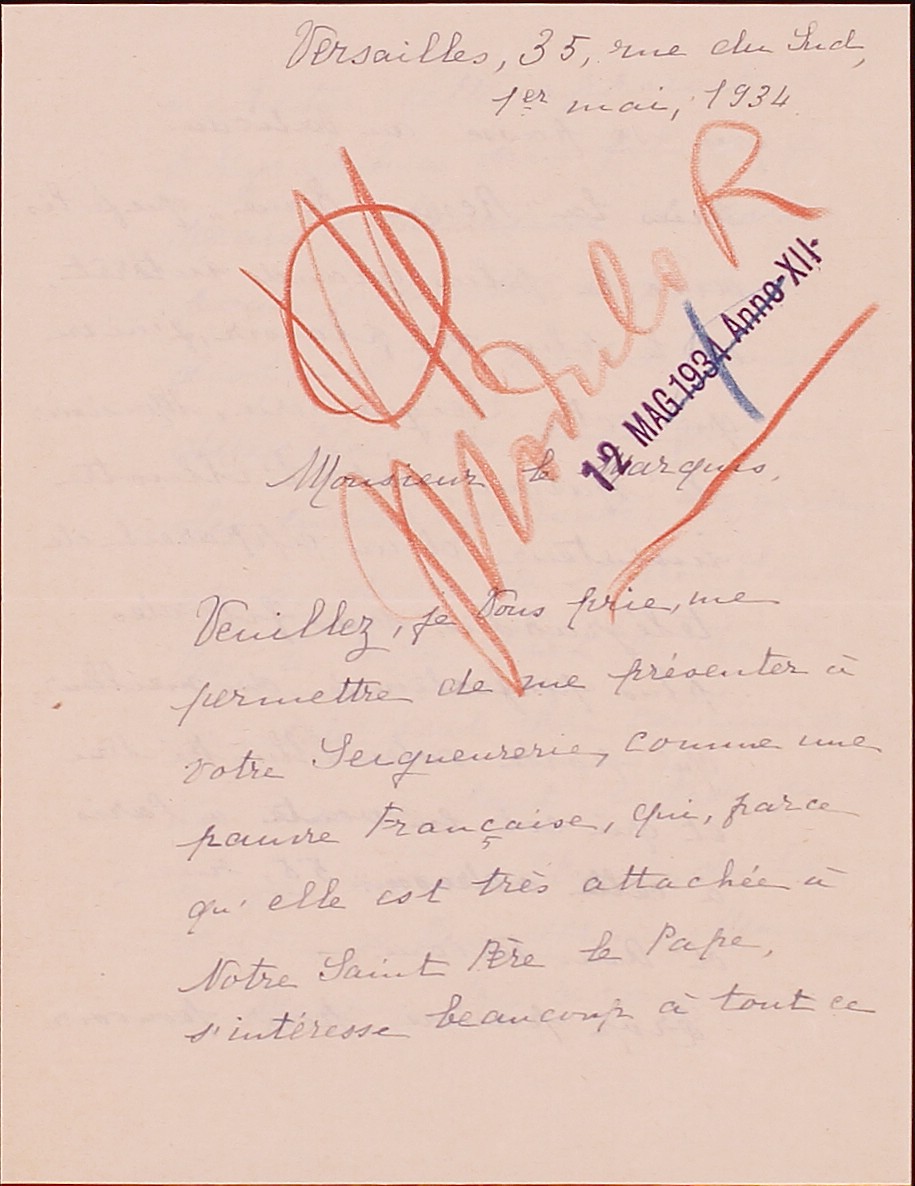 Versailles, 35, rue du Sud,
1er mai, 1934
Modulo R
12 MAG. 1934 Anno XII
Monsieur le Marquis,
Veuillez, je Vous prie, me
permettre de me présenter à
votre Seigneurerie, comme une
pauvre Française, qui, parce
qu'elle est très attachée à
Notre Saint Père le Pape,
s'intéresse beaucoup à tout ce